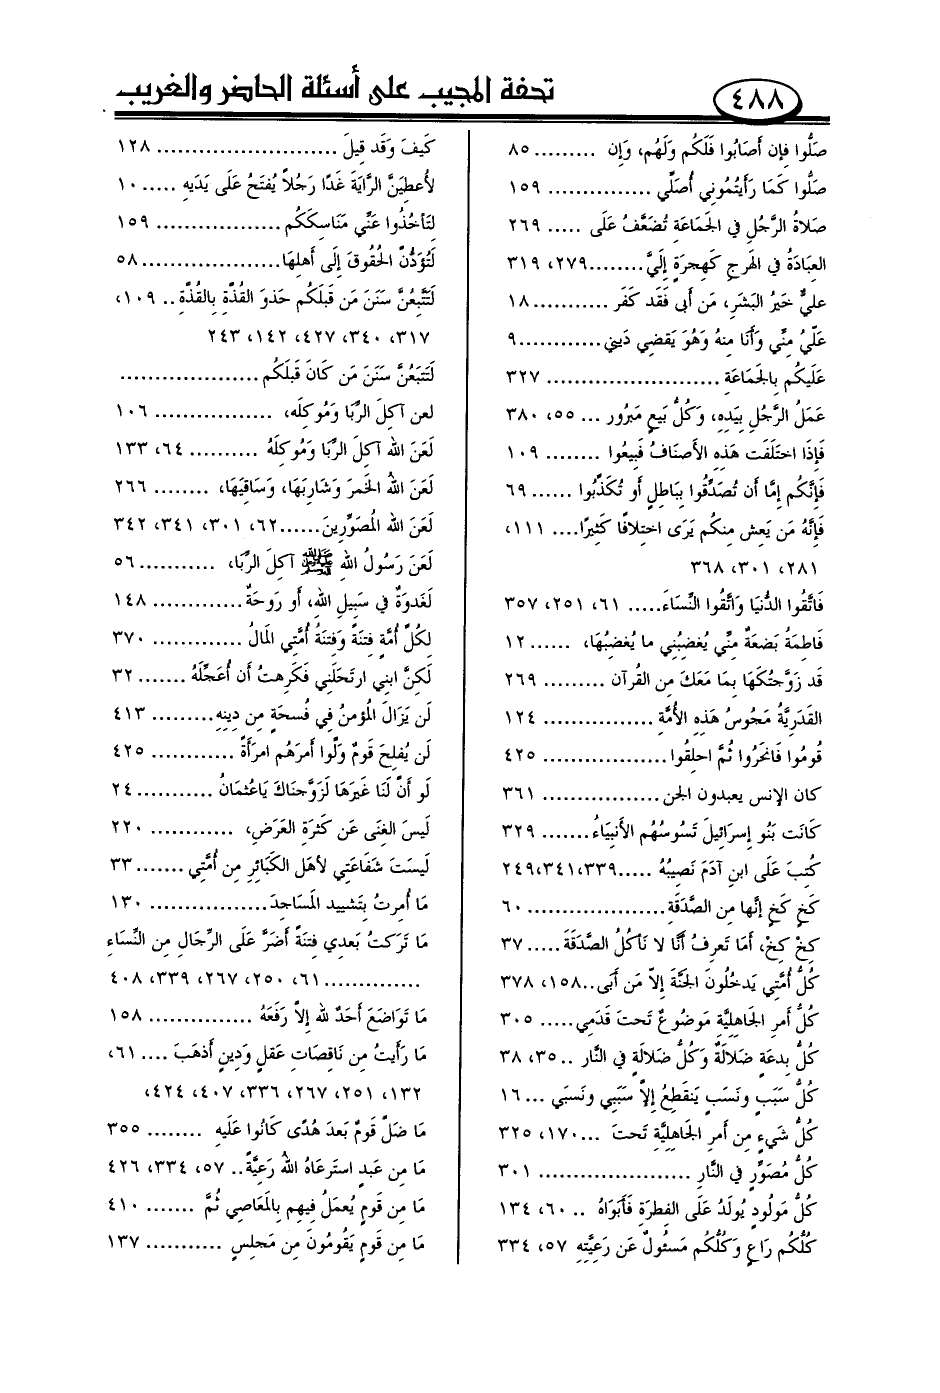 ٤٨٨
تحفة المجيب على أسئلة الحاضر والغريب
صَلُّوا فإن أَصَابُوا فَلَكُم وَلَهُم، وَإن ......... ٨٥
صَلُّوا كَمَا رَأَيتُمُوني أُصَلِّي ............... ١٥٩
صَلاةُ الرَّجُلِ في الجَمَاعَةِ تُضَعَّفُ عَلَى ..... ٢٦٩
العبَادَةُ في الهَرجِ كَهِجرَةٍ إِلَيَّ........٢٧٩، ٣١٩
عليٌّ خَيرُ البَشَرِ، مَن أَبى فَقَد كَفَر ........... ١٨
عَلِّيٌ مِنِّي وَأَنَا مِنهُ وَهُوَ يَقضِي دَيني............٩
عَلَيكُم بِالجَمَاعَة ......................... ٣٢٧
عَمَلُ الرَّجُلِ بِيَدِهِ، وَكُلُّ بَيعٍ مَبرُور ... ٥٥، ٣٨٠
فَإِذَا اختَلَفَت هَذِهِ الأَصنَافُ فَبِيعُوا ........ ١٠٩
فَإِنَّكُم إِمَّا أَن تُصَدِّقُوا بِبَاطِلٍ أَو تُكَذِّبُوا ...... ٦٩
فَإِنَّهُ مَن يَعش مِنكُم يَرَى اختِلافًا كَثِيرًا.... ١١١،
٢٨١، ٣٠١، ٣٦٨
فَاتَّقُوا الدُّنيَا وَاتَّقُوا النِّسَاءَ..... ٦١، ٢٥١، ٣٥٧
فَاطِمَةُ بَضعَةٌ مِنِّي يُغضِبُني ما يُغضِبُهَا، ...... ١٢
قَد زَوَّجتُكَهَا بِمَا مَعَكَ مِن القُرآن ......... ٢٦٩
القَدَرِيَّةُ مَجُوسُ هَذِهِ الأُمَّةِ ................ ١٢٤
قُومُوا فَانحَرُوا ثُمَّ احلِقُوا.................. ٤٢٥
كان الإنس يعبدون الجن ................. ٣٦١
كَانَت بَنُو إسرَائِيلَ تَسُوسُهُم الأَنبِيَاءُ....... ٣٢٩
كُتِبَ عَلَى ابنِ آدَمَ نَصِيبُهُ .....٣٣٩، ٣٤١، ٢٤٩
كَخٍ كَخٍ إنَّها مِن الصَّدَقَةِ.................... ٦٠
كِخْ كِخْ، أَمَا تَعرِفُ أَنَّا لا نَأكُلُ الصَّدَقَةَ ..... ٣٧
كُلُّ أُمَّتِي يَدخُلُونَ الجَنَّةَ إِلاَّ مَن أَبَى..١٥٨، ٣٧٨
كُلُّ أَمرِ الجَاهِلِيَّةِ مَوضُوعٌ تَحتَ قَدَمِي..... ٣٠٥
كُلُّ بِدعَةٍ ضَلالَةٌ وَكُلُّ ضَلالَةٍ فِي النَّار ..٣٥، ٣٨
كُلُّ سَبَبٍ ونَسَبٍ يَنقَطِعُ إِلاَّ سَبَبِي ونَسَبَي ... ١٦
كُلُّ شَيءٍ مِن أَمرِ الجَاهِلِيَّةِ تَحتَ ...١٧٠، ٣٢٥
كُلُّ مُصَوِّرٍ في النَّارِ ..................... ٣٠١
كُلُّ مَولُودٍ يُولَدُ عَلَى الفِطرَةِ فَأَبَوَاهُ .. ٦٠، ١٣٤
كُلُّكُم رَاعٍ وَكُلُّكُم مَسئُولٌ عَن رَعِيَّتِهِ ٥٧، ٣٣٤
كَيفَ وَقَد قِيلَ .......................... ١٢٨
لأُعطِيَنَّ الرَّايَةَ غَدًا رَجُلاً يُفتَحُ عَلَى يَدَيهِ ..... ١٠
لتَأخُذُوا عَنِّي مَنَاسِكَكُم .................. ١٥٩
لَتُؤَدُّنَّ الحُقُوقَ إِلَى أَهلِهَا.................... ٥٨
لَتَتَّبِعُنَّ سَنَنَ مَن قَبلَكُم حَذوَ القُذَّةِ بالقُذَّةِ .. ١٠٩،
٣١٧، ٣٤٠، ٤٢٧، ١٤٢، ٢٤٣
لَتَتبَعُنَّ سَنَنَ مَن كَانَ قَبلَكُم ....................
لعن آكِلَ الرِّبَا وَمُوكِلَه، ................. ١٠٦
لَعَنَ الله آكِلَ الرِّبَا وَمُوكِلَهُ .......... ٦٤، ١٣٣
لَعَنَ اللهُ الخَمرَ وَشَارِبَهَا، وَسَاقِيَهَا، ........ ٢٦٦
لَعَنَ الله المُصَوِّرِينَ......٦٢، ٣٠١، ٣٤١، ٣٤٢
لَعَنَ رَسُولُ اللهِ ﷺ آكِلَ الرِّبَا، ........... ٥٦
لَغَدوَةٌ فِي سَبِيلِ الله، أَو رَوحَةٌ............. ١٤٨
لِكُلِّ أُمَّةٍ فِتنَةٌ وَفِتنَةُ أُمَّتِي المَالُ ............. ٣٧٠
لَكِنَّ ابنِي ارتَحَلَني فَكَرِهتُ أَن أُعَجِّلَهُ ....... ٣٢
لَن يَزَالَ المُؤمِنُ فِي فُسحَةٍ مِن دِينِهِ.......... ٤١٣
لَن يُفلِحَ قَومٌ وَلَّوا أَمرَهُم امرَأَةً .............. ٤٢٥
لَو أَنَّ لَنَا غَيرَهَا لَزَوَّجنَاكَ يَاعُثمَانُ ............ ٢٤
لَيسَ الغِنَى عَن كَثرَةِ العَرَضِ، ............ ٢٢٠
لَيسَت شَفَاعَتِي لأَهلِ الكَبَائِرِ مِن أُمَّتِي ....... ٣٣
مَا أُمِرتُ بِتَشيِيد المَسَاجِدَ................. ١٣٠
مَا تَرَكتُ بَعدِي فِتنَةً أَضَرَّ عَلَى الرِّجَالِ مِن النِّسَاء
..............٦١، ٢٥٠، ٢٦٧، ٣٣٩، ٤٠٨
مَا تَوَاضَعَ أَحَدٌ لله إِلاَّ رَفَعَهُ ............... ١٥٨
مَا رَأَيتُ مِن نَاقِصَاتِ عَقلٍ وَدِينٍ أَذهَبَ .... ٦١،
١٣٢، ٢٥١، ٢٦٧، ٣٣٦، ٤٠٧، ٤٢٤،
مَا ضَلَّ قَومٌ بَعدَ هُدًى كَانُوا عَلَيهِ ........ ٣٥٥
مَا مِن عَبدٍ استَرعَاهُ اللهُ رَعِيَّةً.. ٥٧، ٣٣٤، ٤٢٦
مَا مِن قَومٍ يُعمَلُ فِيهِم بِالمَعَاصِي ثُمَّ ....... ٤١٠
مَا مِن قَومٍ يَقُومُونَ مِن مَجلِسٍ ........... ١٣٧